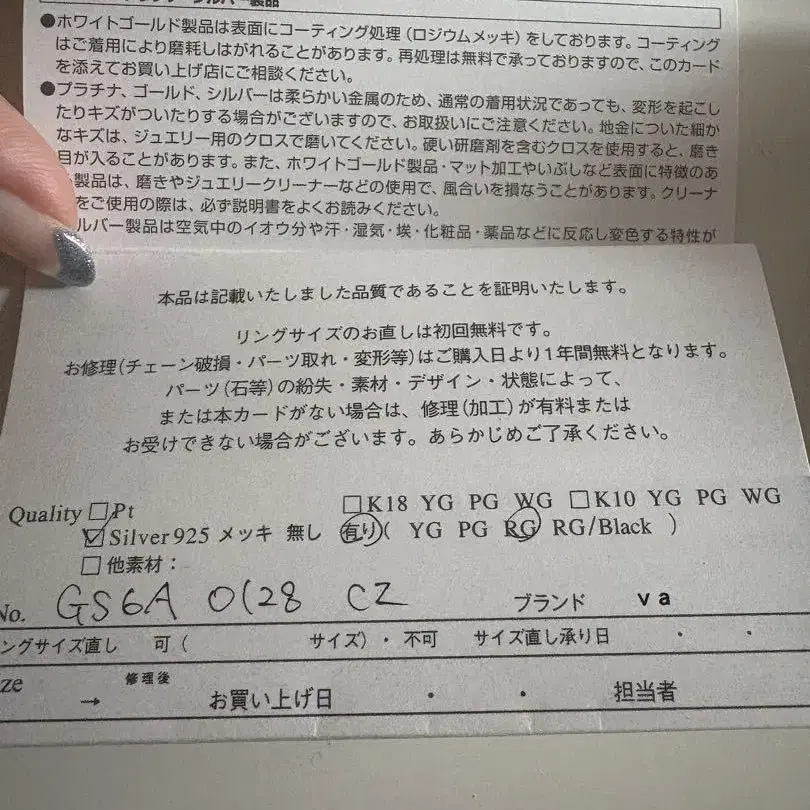 ●ホワイトゴールド製品は表面にコーティング処理(ロジウムメッキ)をしております。コーティング
はご着用により磨耗しはがれることがあります。再処理は無料で承っておりますので、このカード
を添えてお買い上げ店にご相談ください。
●プラチナ、ゴールド、シルバーは柔らかい金属のため、通常の着用状況であっても、変形を起こし
たりキズがついたりする場合がございますので、お取扱いにご注意ください。地金についた細か
なキズは、ジュエリー用のクロスで磨いてください。硬い研磨剤を含むクロスを使用すると、磨き
目が入ることがあります。また、ホワイトゴールド製品・マット加工やいぶしなど表面に特徴のあ
製品は、磨きやジュエリークリーナーなどの使用で、風合いを損なうことがあります。クリーナ
をご使用の際は、必ず説明書をよくお読みください。
ルバー製品は空気中のイオウ分や汗・湿気・埃・化粧品・薬品などに反応し変色する特性が
本品は記載いたしました品質であることを証明いたします。
リングサイズのお直しは初回無料です。
お修理(チェーン破損・パーツ取れ・変形等)はご購入日より1年間無料となります。
パーツ(石等)の紛失・素材・デザイン・状態によって、
または本カードがない場合は、修理(加工)が有料または
お受けできない場合がございます。あらかじめご了承ください。
Quality □Pt □K18 YG PG WG □K10 YG PG WG
☑Silver925 メッキ 無し 有り( YG PG RG RG/Black )
□他素材:
No. GS6A 0128 CZ ブランド va
ングサイズ直し 可( サイズ)・不可 サイズ直し承り日 ・ ・
ze → 修理後 お買い上げ日 ・ ・ 担当者